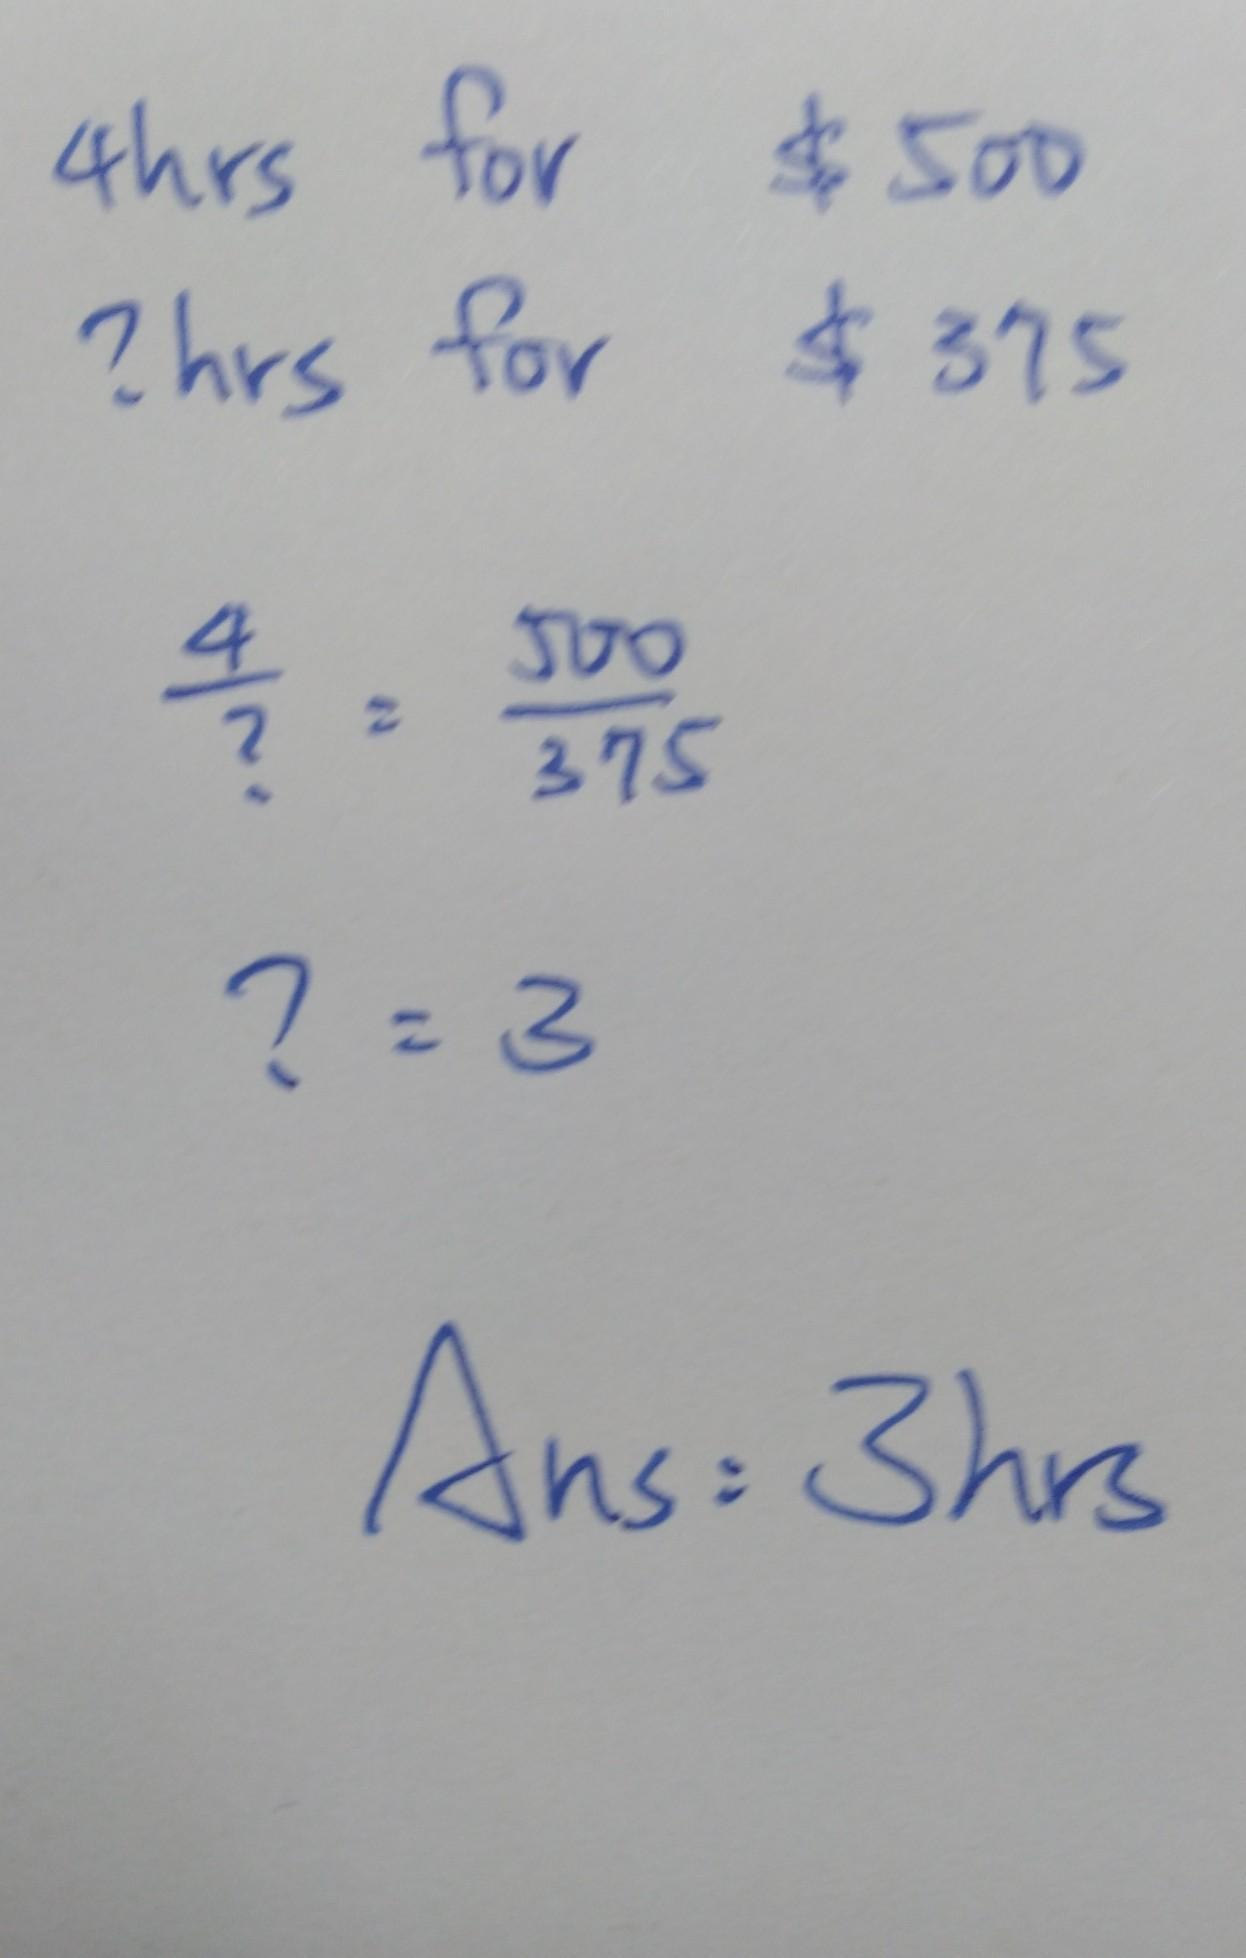 4hrs for $500
?hrs for $375
4/? = 500/375
? = 3
Ans: 3hrs